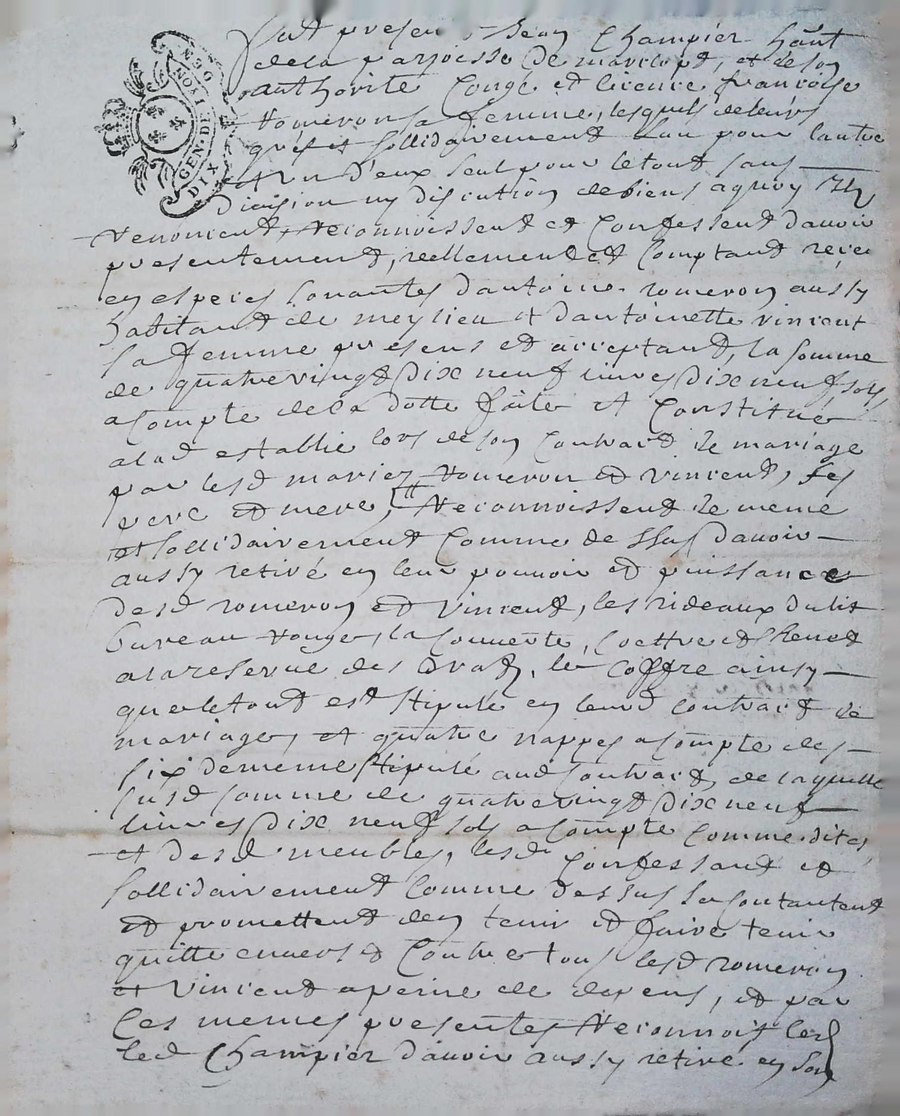 GEN. LYON
GEN. DE.
DIX
fut presen Jean Champier hãnt
de la parroisse de marclopt, et de son
authorité Congé et licence francoise
romeron sa femme, lesquels de leurs
grés et sollidairement L'un pour l'autre
et un d'eux seul pour le tout sans
division ny discution de biens a quoy Ils
renoncent, reconnoissent et Confessent d'avoir
presentement, reellement et Comptant reçeu
en especes sonantes d'antoine romeron aussy
habitant de meylieu et d'antoinette vincent
sa femme presens et acceptant, la somme
de quatre vingt Dix neuf livres Dix neuf sols
a Compte de la dotte faite et Constitué
a lad establie lors de son Contract de mariage
par lesd mariez romeron et vincent, ses
pere et mere, reconnoissent de meme
et sollidairement Comme dessus d'avoir
aussy retiré en leur pouvoir et puissance
desd romeron et vincent, les rideaux du lit
bureau rouge, la Couverte,
a la reserve des Draps, le Coffre ainsy
que le tout est stipulé en leurd contract de
mariage, et quatre nappes a Compte des
six de meme stipulé aud Contract, de laquelle
susd somme de quatre vingt Dix neuf
livres Dix neuf sols a Compte Comme dit est,
et desd meubles, lesd Confessant et
sollidairement Comme dessus se Contantent
et promettent d'en tenir et faire tenir
quitte envers et Contre tous lesd romeron
et vincent a peine de depens, et par
Ces memes presentes reconnoit
led Champier d'avoir aussy retiré en son